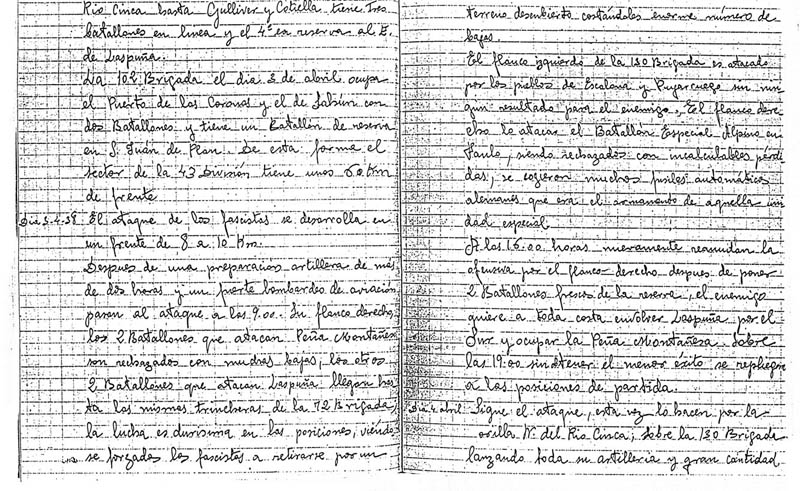 Rio Cinca hasta Gulliver y Cotiella tiene tres
batallones en linea y el 4º en reserva al E.
de Laspuña.
La 102 Brigada el dia 3 de abril ocupa
el Puerto de las Coronas y el de Sahún con
dos Batallones y tiene un Batallón de reserva
en S. Juán de Plan. De esta forma el
sector de la 43 División tiene unos 60 Km
de frente
Dia 3-4-38 El ataque de los fascistas se desarrolla en
un frente de 8 a 10 Km.
Despues de una preparación artillera de más
de dos horas y un fuerte bombardeo de aviación
pasan al ataque a las 9.00. Su flanco derecho,
los 2 Batallones que atacan Peña Montañesa
son rechazados con muchas bajas; los otros
2 Batallones que atacan Laspuña llegan has
ta las mismas trincheras de la 72 Brigada,
la lucha es durisima en las posiciones, viendo
se forzados los fascistas a retirarse por un
terreno descubierto costándoles enorme número de
bajas.
El flanco izquierdo de la 130 Brigada es atacado
por los pueblos de Escalona y Puyarruego sin nin
gún resultado para el enemigo, El flanco dere
cho lo atacas el Batallón Especial Alpino en
Fanlo, siendo rechazados con incalculables pérdi
das; se cogieron muchos fusiles automáticos
alemanes que era el armamento de aquella uni
dad especial
A las 16.00 horas nuevamente reanudan la
ofensiva por el flanco derecho despues de poner
2 Batallones frescos de la reserva, el enemigo
quiere a toda costa envolver Laspuña por el
Sur y ocupar la Peña Montañesa. Sobre
las 19.00 sin tener el menor éxito se repliegan
a las posiciones de partida.
Dia 4 abril Sigue el ataque, esta vez lo hacen por la
orilla N. del Rio Cinca, sobre la 130 Brigada
lanzando toda su artilleria y gran cantidad